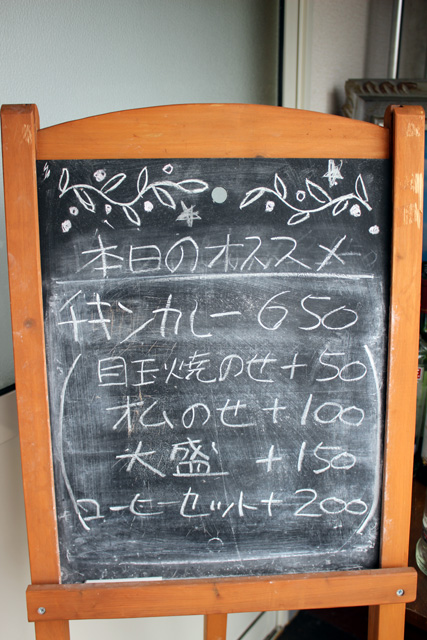 本日のオススメ
チキンカレー 650
目玉焼のせ+50
オムのせ+100
大盛 +150
コーヒーセット+200